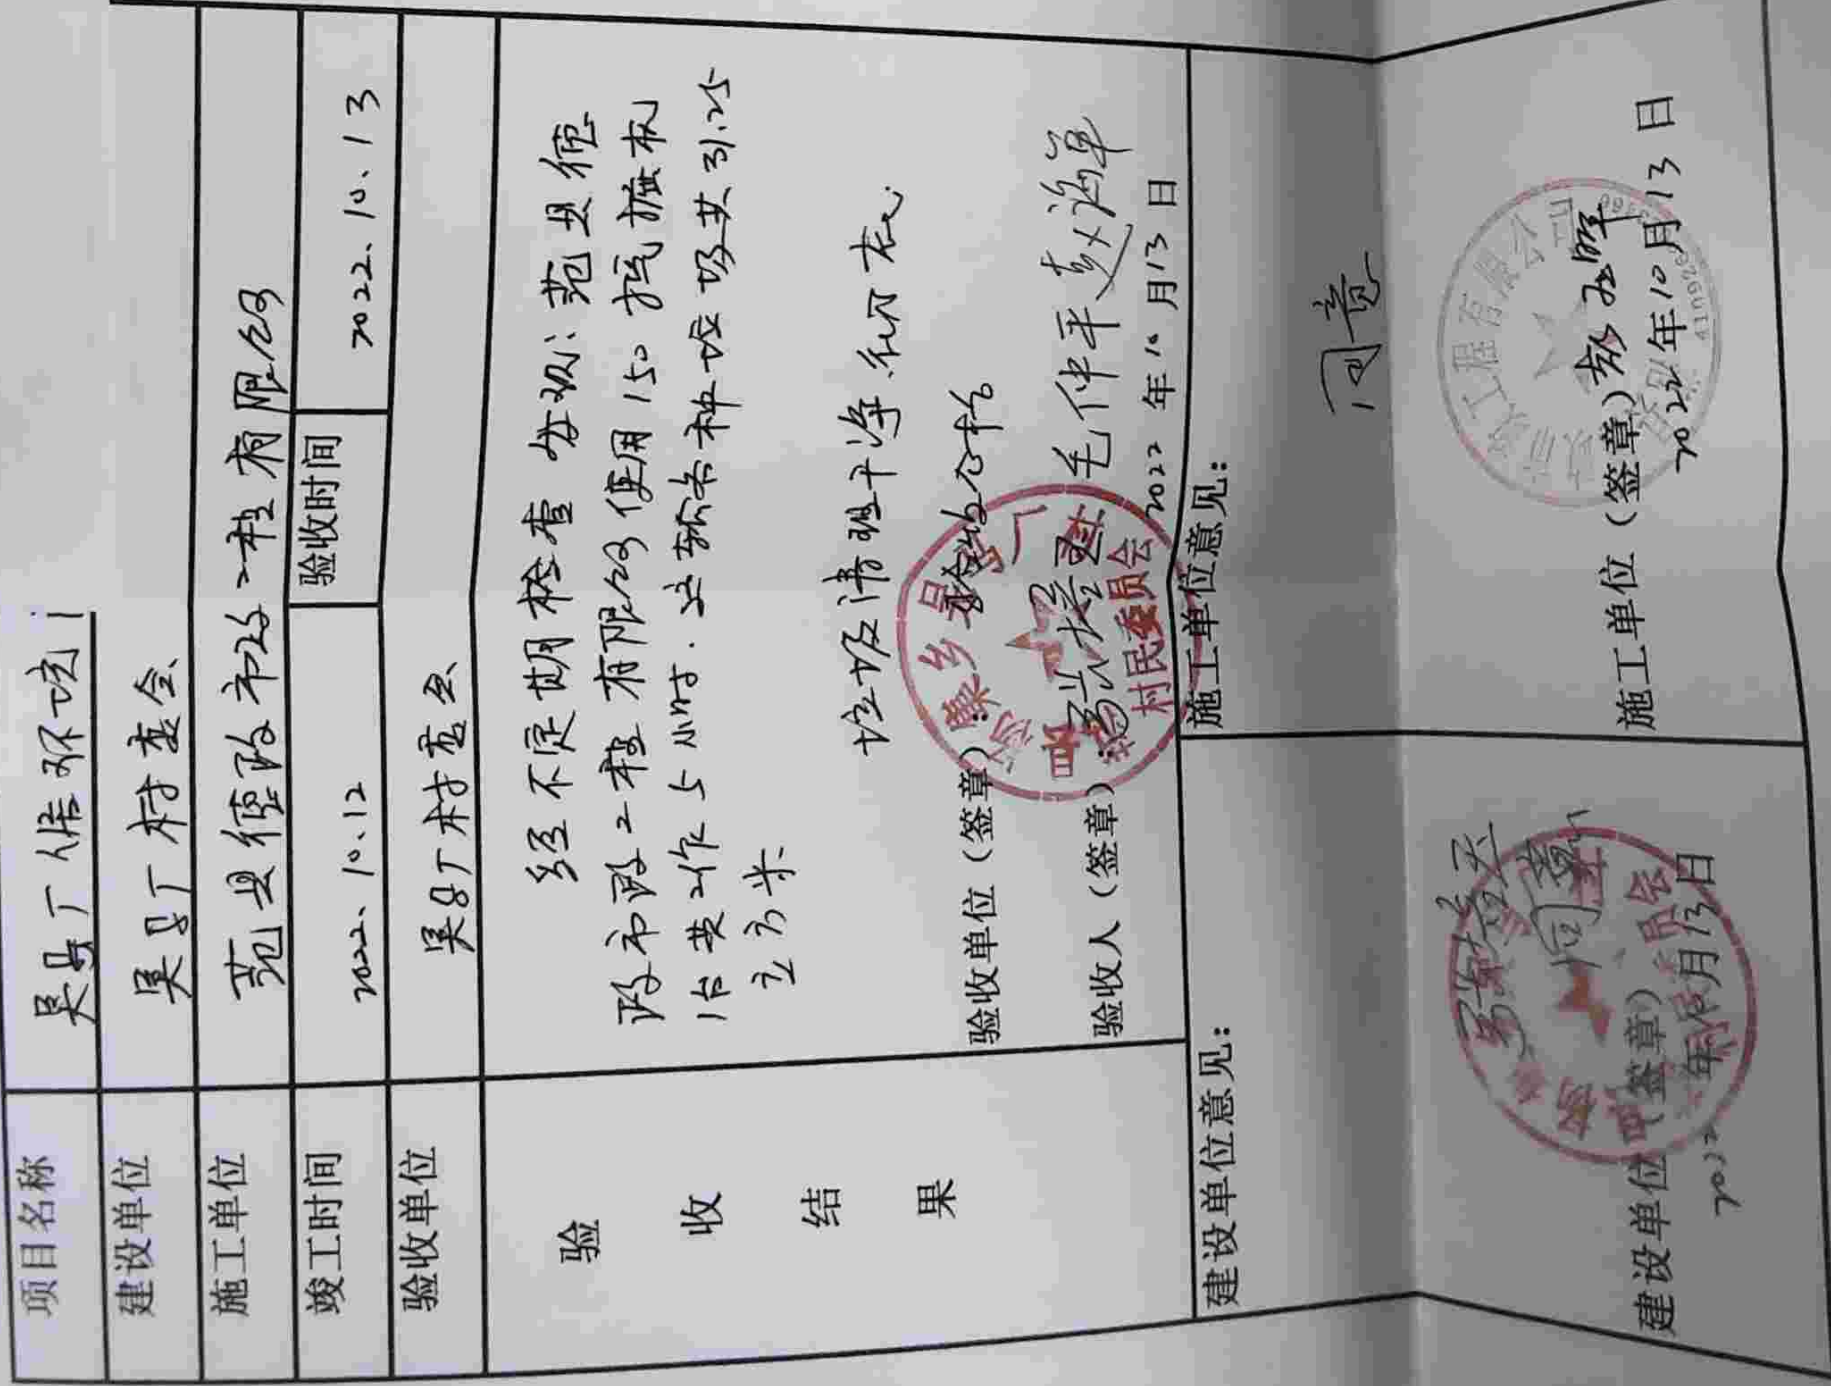 项目名称 吴县厂人居环境
建设单位 吴县厂村委会
施工单位 范县德政市政工程有限公司
竣工时间 2022.10.12 验收时间 2022.10.13
验收单位 吴县厂村委会
验收结果
经不定期检查 确认: 范县德
政市政工程有限公司使用150挖掘机
1台共工作5小时. 运输各种垃圾共31.25
立方米
垃圾清理干净.彻底
验收单位（签章）：
验收人（签章）： 毛仲平 赵海军
2022年10月13日
村民委员会
建设单位意见：
同意
建设单位（签章）
2022年10月13日
施工单位意见：
同意
市政工程有限公司
施工单位（签章）
2022年10月13日